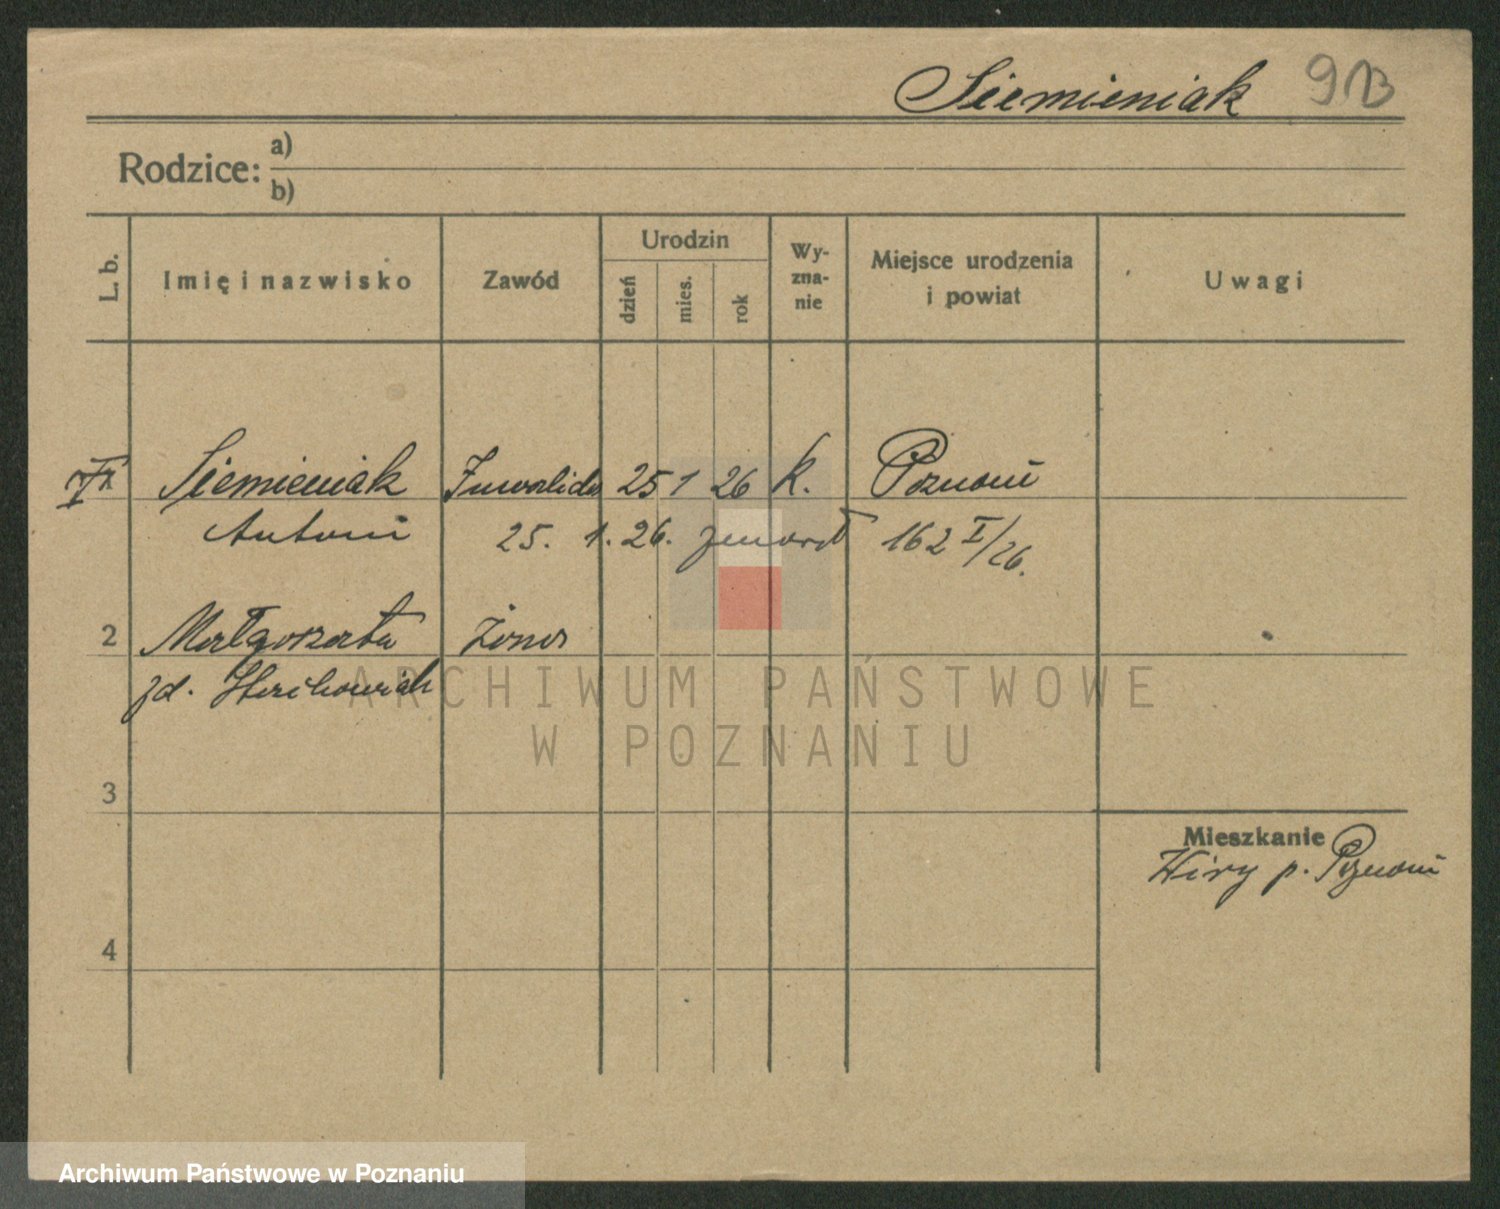 Siemieniak 913
Rodzice: a)
b)
L. b. Imię i nazwisko Zawód Urodzin dzień mies. rok Wy-zna-nie Miejsce urodzenia i powiat Uwagi
Siemieniak Inwalida 25 1 26 k. Poznań
Antoni 25. 1. 26. zmarł 162 I/26.
2 Małgorzata żona
zd.
3
Mieszkanie
Wiry p. Poznań
4
ARCHIWUM PAŃSTWOWE
W POZNANIU
Archiwum Państwowe w Poznaniu